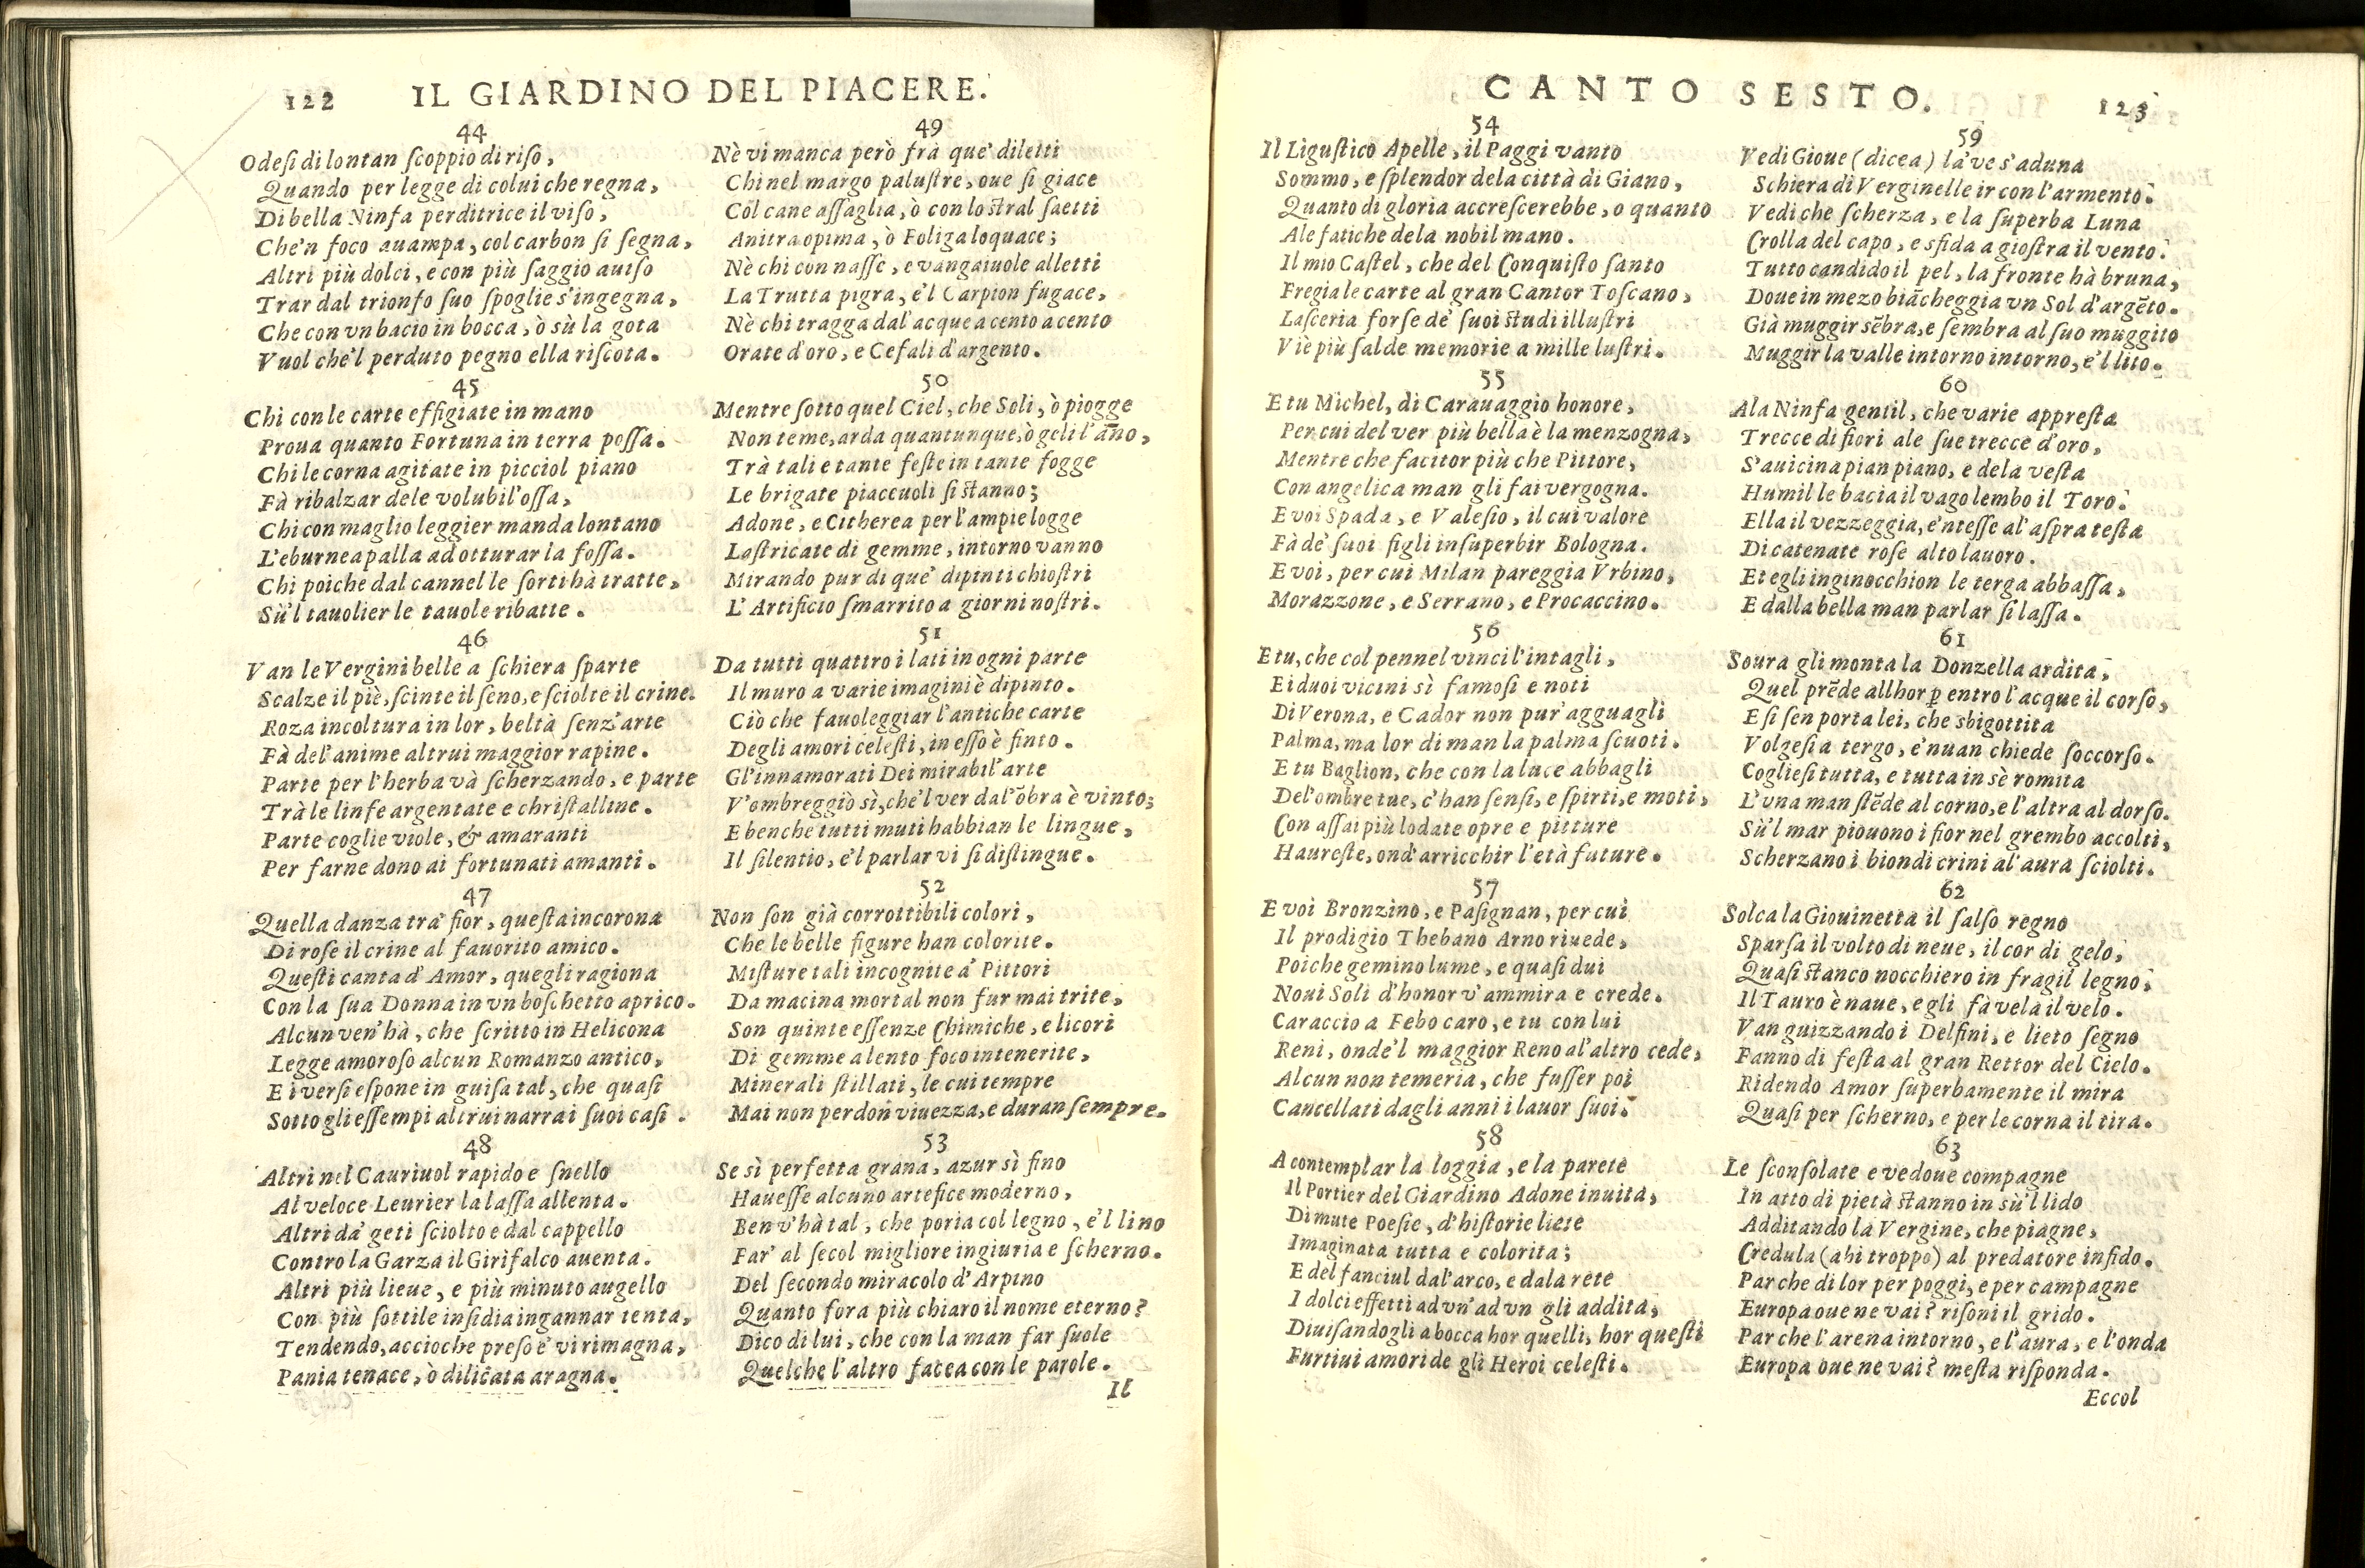 122 IL GIARDINO DEL PIACERE.
44
Odesi di lontan scoppio di riso,
Quando per legge di colui che regna,
Di bella Ninfa perditrice il viso,
Che'n foco auampa, col carbon si segna,
Altri più dolci, e con più saggio auiso
Trar dal trionfo suo spoglie s'ingegna,
Che con vn bacio in bocca, ò sù la gota
Vuol che'l perduto pegno ella riscota.
45
Chi con le carte effigiate in mano
Proua quanto Fortuna in terra possa.
Chi le corna agitate in picciol piano
Fà ribalzar dele volubil'ossa,
Chi con maglio leggier manda lontano
L'eburnea palla ad otturar la fossa.
Chi poiche dal cannel le sorti hà tratte,
Sù'l tauolier le tauole ribatte.
46
Van le Vergini belle a schiera sparte
Scalze il piè, scinte il seno, e sciolte il crine.
Roza incoltura in lor, beltà senz'arte
Fà del'anime altrui maggior rapine.
Parte per l'herba và scherzando, e parte
Trà le linfe argentate e christalline.
Parte coglie viole, & amaranti
Per farne dono ai fortunati amanti.
47
Quella danza tra' fior, questa incorona
Di rose il crine al fauorito amico.
Questi canta d'Amor, quegli ragiona
Con la sua Donna in vn boschetto aprico.
Alcun ven'hà, che scritto in Helicona
Legge amoroso alcun Romanzo antico,
E i versi espone in guisa tal, che quasi
Sotto gli essempi altrui narra i suoi casi.
48
Altri nel Cauriuol rapido e snello
Al veloce Leurier la lassa allenta.
Altri da' geti sciolto e dal cappello
Contro la Garza il Girifalco auenta.
Altri più lieue, e più minuto augello
Con più sottile insidia ingannar tenta,
Tendendo, accioche preso e' vi rimagna,
Pania tenace, ò dilicata aragna.
49
Nè vi manca però frà que' diletti
Chi nel margo palustre, oue si giace
Col cane assaglia, ò con lo stral saetti
Anitra opima, ò Foliga loquace;
Nè chi con nasse, e vangaiuole alletti
La Trutta pigra, e'l Carpion fugace,
Nè chi tragga dal'acque a cento a cento
Orate d'oro, e Cefali d'argento.
50
Mentre sotto quel Ciel, che Soli, ò piogge
Non teme, arda quantunque, ò geli l'āno,
Trà tali e tante feste in tante fogge
Le brigate piaceuoli si stanno;
Adone, e Citherea per l'ampie logge
Lastricate di gemme, intorno vanno
Mirando pur di que' dipinti chiostri
L'Artificio smarrito a giorni nostri.
51
Da tutti quattro i lati in ogni parte
Il muro a varie imagini è dipinto.
Ciò che fauoleggiar l'antiche carte
Degli amori celesti, in esso è finto.
Gl'innamorati Dei mirabil'arte
V'ombreggiò sì, che'l ver dal'ōbra è vinto;
E benche tutti muti habbian le lingue,
Il silentio, e'l parlar vi si distingue.
52
Non son già corrottibili colori,
Che le belle figure han colorite.
Misture tali incognite a' Pittori
Da macina mortal non fur mai trite,
Son quinte essenze Chimiche, e licori
Di gemme a lento foco intenerite,
Minerali stillati, le cui tempre
Mai non perdon viuezza, e duran sempre.
53
Se sì perfetta grana, azur sì fino
Hauesse alcuno artefice moderno,
Ben v'hà tal, che poria col legno, e'l lino
Far' al secol migliore ingiuria e scherno.
Del secondo miracolo d'Arpino
Quanto fora più chiaro il nome eterno?
Dico di lui, che con la man far suole
Quelche l'altro facea con le parole.
Il
CANTO SESTO. 123
54
Il Ligustico Apelle, il Paggi vanto
Sommo, e splendor dela città di Giano,
Quanto di gloria accrescerebbe, o quanto
Ale fatiche dela nobil mano.
Il mio Castel, che del Conquisto santo
Fregia le carte al gran Cantor Toscano,
Lasceria forse de' suoi studi illustri
Viè più salde memorie a mille lustri.
55
E tu Michel, di Carauaggio honore,
Per cui del ver più bella è la menzogna,
Mentre che facitor più che Pittore,
Con angelica man gli fai vergogna.
E voi Spada, e Valesio, il cui valore
Fà de' suoi figli insuperbir Bologna.
E voi, per cui Milan pareggia Vrbino,
Morazzone, e Serrano, e Procaccino.
56
E tu, che col pennel vinci l'intagli,
E i duoi vicini sì famosi e noti
Di Verona, e Cador non pur' agguagli
Palma, ma lor di man la palma scuoti.
E tu Baglion, che con la luce abbagli
Del'ombre tue, c'han sensi, e spirti, e moti,
Con assai più lodate opre e pitture
Haureste, ond'arricchir l'età future.
57
E voi Bronzino, e Pasignan, per cui
Il prodigio Thebano Arno riuede,
Poiche gemino lume, e quasi dui
Noui Soli d'honor v'ammira e crede.
Caraccio a Febo caro, e tu con lui
Reni, onde'l maggior Reno al'altro cede,
Alcun non temeria, che fusser poi
Cancellati dagli anni i lauor suoi.
58
A contemplar la loggia, e la parete
Il Portier del Giardino Adone inuita,
Di mute Poesie, d'historie liete
Imaginata tutta e colorita;
E del fanciul dal'arco, e dala rete
I dolci effetti ad vn' ad vn gli addita,
Diuisandogli a bocca hor quelli, hor questi
Furtiui amori de gli Heroi celesti.
59
Vedi Gioue (dicea) là've s'aduna
Schiera di Verginelle ir con l'armento.
Vedi che scherza, e la superba Luna
Crolla del capo, e sfida a giostra il vento.
Tutto candido il pel, la fronte hà bruna,
Doue in mezo biācheggia vn Sol d'argēto.
Già muggir sēbra, e sembra al suo muggito
Muggir la valle intorno intorno, e'l lito.
60
Ala Ninfa gentil, che varie appresta
Trecce di fiori ale sue trecce d'oro,
S'auicina pian piano, e dela vesta
Humil le bacia il vago lembo il Toro.
Ella il vezzeggia, e'ntesse al'aspra testa
Di catenate rose alto lauoro.
Et egli inginocchion le terga abbassa,
E dalla bella man parlar si lassa.
61
Soura gli monta la Donzella ardita,
Quel prēde allhor p̲ entro l'acque il corso,
E si sen porta lei, che sbigottita
Volgesi a tergo, e'nuan chiede soccorso.
Cogliesi tutta, e tutta in sè romita
L'vna man stēde al corno, e l'altra al dorso.
Sù'l mar piouono i fior nel grembo accolti,
Scherzano i biondi crini al'aura sciolti.
62
Solca la Giouinetta il salso regno
Sparsa il volto di neue, il cor di gelo,
Quasi stanco nocchiero in fragil legno;
Il Tauro è naue, e gli fà vela il velo.
Van guizzando i Delfini, e lieto segno
Fanno di festa al gran Rettor del Cielo.
Ridendo Amor superbamente il mira
Quasi per scherno, e per le corna il tira.
63
Le sconsolate e vedoue compagne
In atto di pietà stanno in sù'l lido
Additando la Vergine, che piagne,
Credula (ahi troppo) al predatore infido.
Par che di lor per poggi, e per campagne
Europa oue ne vai? risoni il grido.
Par che l'arena intorno, e l'aura, e l'onda
Europa oue ne vai? mesta risponda.
Eccol